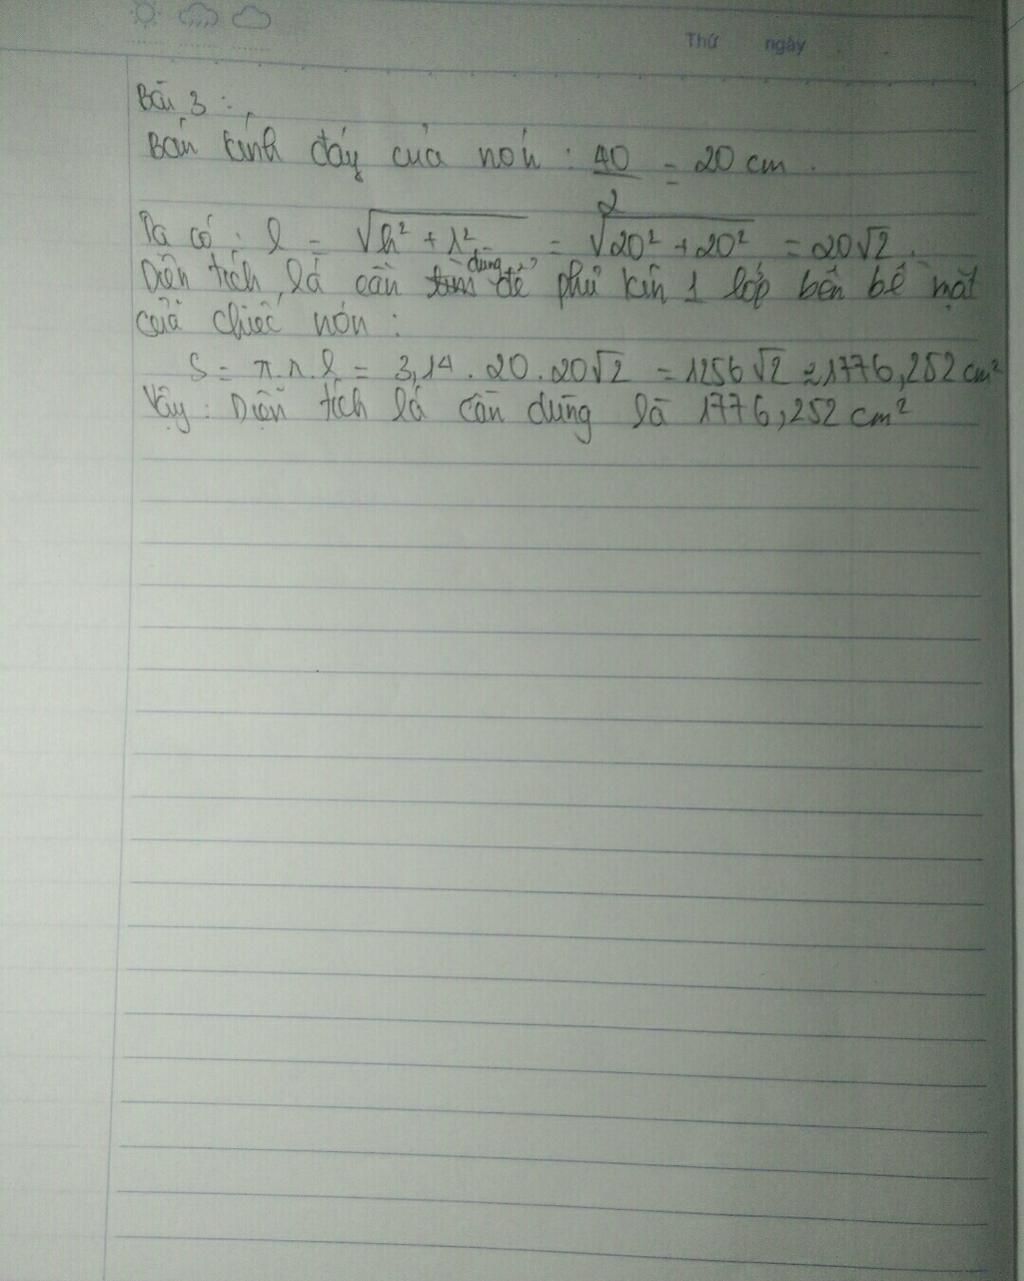 Thứ ngày
Bài 3 :
Bán kính đáy của nón : 40/2 = 20 cm .
Ta có : l = √h² + r² = √20² + 20² = 20√2 .
Diện tích lá cần dùng để phủ kín 1 lớp bên bề mặt
của chiếc nón :
S = π.r.l = 3,14 . 20 . 20√2 = 1256√2 ≈ 1776,252 cm²
Vậy : Diện tích lá cần dùng là 1776,252 cm²